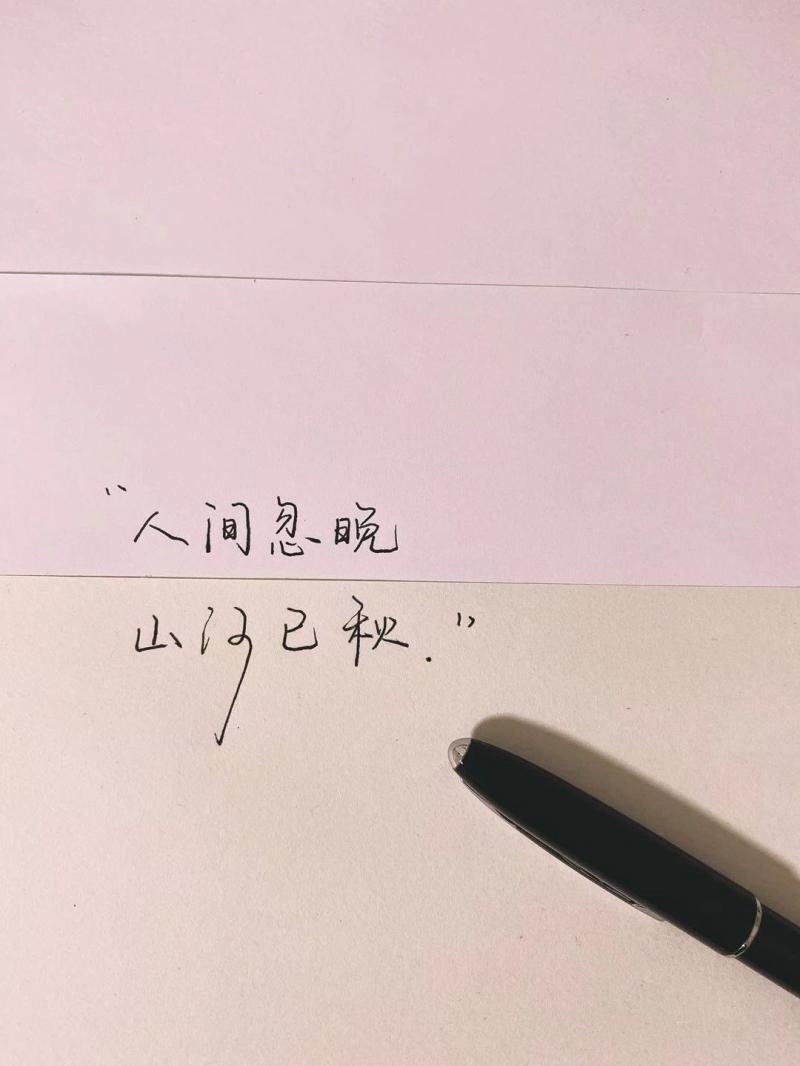 “人间忽晚
山河已秋.”